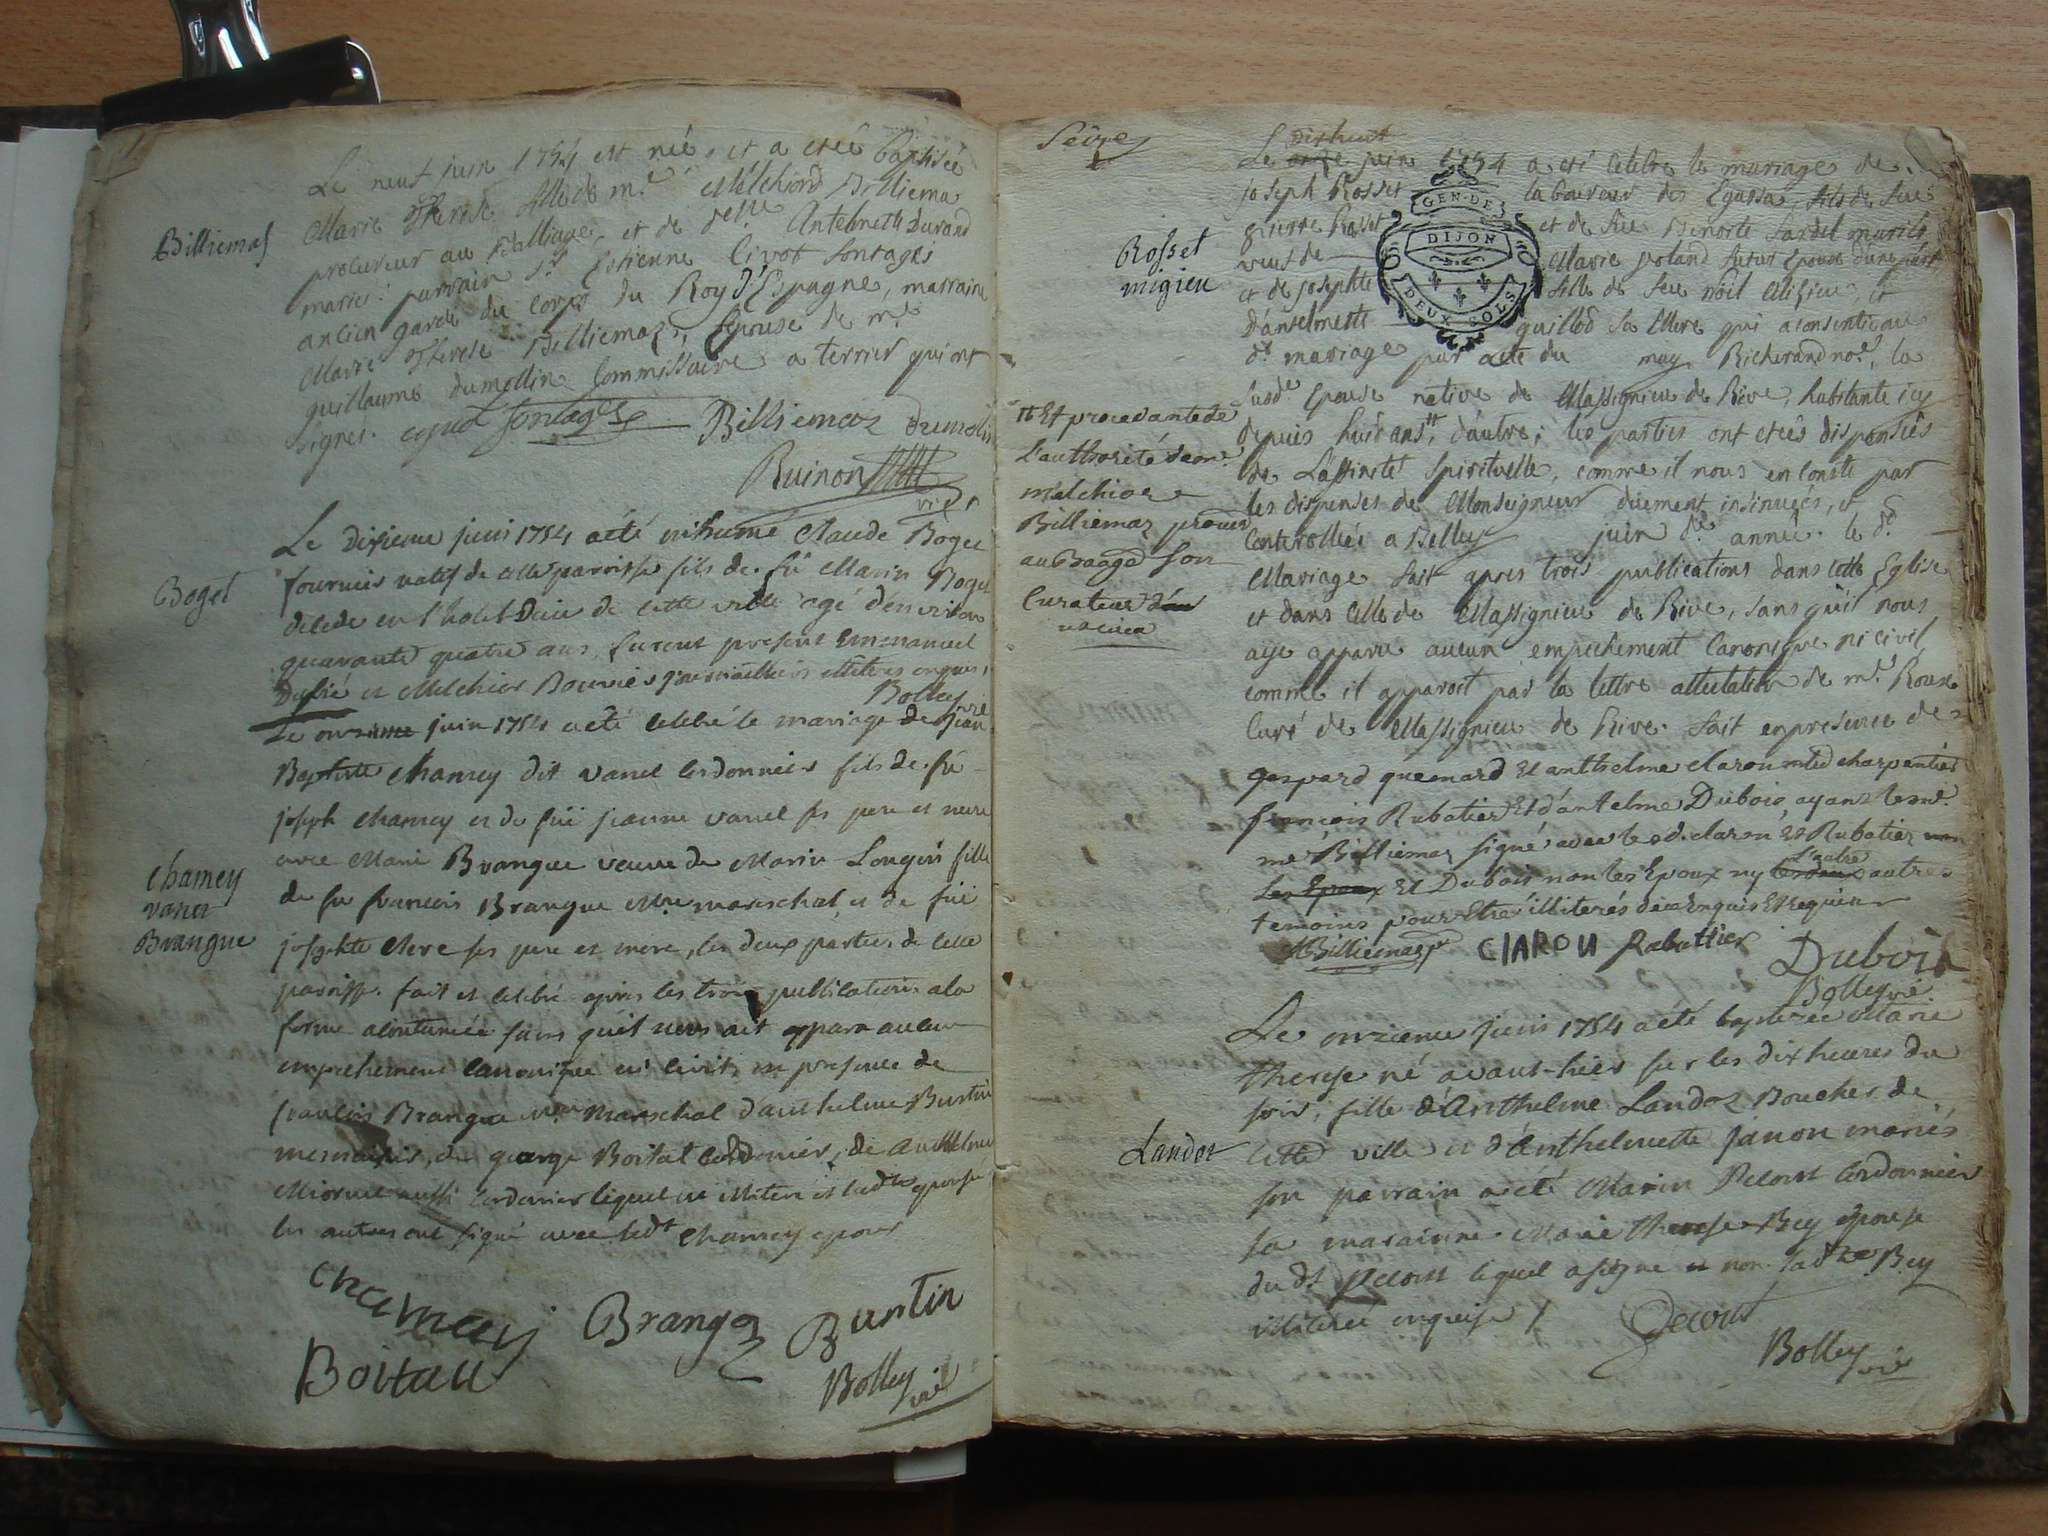 Le neuf juin 1754 est née, et a eteé baptisée
Marie Therese fille de mr. Melchiord Billiema
procureur au Balliage, et de delle Anthelmette Durand
mariés: parrain sr. Estienne Civot Sontagés
ancien garde du Corps du Roy d'Espagne, marraine
Marie Therese Billiemaz, Epouse de mr.
guillaume dumollin Commissaire a terrier qui ont
signés.
Billiemaz
Billiemaz dumolin
Ruinon
vicr.
Le dixieme juin 1754 a été inhumé Claude Boget
fournier natif de cette paroisse fils de fû Marin Boget
décédé en l'hotel Dieu de cette ville agé d'environ
quarante quatre ans, furent present Emmanuel
et Melchior Bouvier journailliers illiteres enquis,
Bolley vic
Boget
Le onzieme juin 1754 a été celebré le mariage de Jean
Baptiste Chamey dit vanel cordonnier fils de fû
joseph Chamey et de füe jeanne vanel ses pere et mere
avec Marie Brangue veuve de Marin Longin fille
de fu francois Brangue Mtre mareschal, et de füe
josephte Clerc ses pere et mere, les deux parties de cette
paroisse. fait et celebré apres les trois publications a la
forme acoutumée sans qu'il nous ait apparu aucun
empechement canonique ni civil, en presence de
francois Brangue Mtre Mareschal d'anthelme Buntin
menuisier, de george Boital cordonier, de Anthelme
aussi cordonier lequel est illitere et ladte epouse
les autres ont signé avec ledt Chamey epoux
Chamey
vanel
Brangue
chamey Brangoz Buntin
Boitall Bolley vic
Seize
GEN·DE
DIJON
DEUX SOLS
dixhuit
Le onze juin 1754 a eté celebre le mariage de
joseph Rosset laboureur des Egassa, fils de feu
pierre Rosset et de feue Benoite Sardel mariés
veuf de Marie poland futur Epoux d'une part
et de josephte fille de feu Noël Migieu, et
d'anselmette guillod sa Mere qui a consenti au
dt. mariage par acte du may Richerand nore, la
susde Epouse native de Massignieu de Rive, habitante icy
depuis huid ans, d'autre; les parties ont eteés dispensées
de L'affinité spirituelle, comme il nous en conste par
les dispenses de Monseigneur düement insinuées, et
Controllées a Belley juin de. année. le dt.
Mariage fait apres trois publications dans cette Eglise
et dans celle de Massignieu de Rive, sans qu'il nous
aye apparu aucun empechement Canonique ni civil,
comme il apparoit par la lettre attestation de mr. Roux
Curé de Massignieu de Rive. fait en presence de
gaspard quemard Et anthelme claron mtre charpentier
francois Rubatier Et d'antelme Dubois, ayant
Billiemaz signé avec led. claron, Et Rubatier
les Epoux Et Dubois non les Epoux ny l'autre autres
temoins pour Etre illiterés de ce Enquis Et requis
Rosset
migieu
Et procedante de
L'authorité de mr.
melchior
Billiemaz procur
au Baage son
Curateur
Billiemaz ClAROn Rabattier Dubois
Bolley vic.
Le onzieme juin 1754 a été baptizée Marie
therese né avant-hier sur les dix heures du
soir, fille d'Anthelme Landoz Boucher de
cette ville et d'Anthelmette Janon mariés
son parrain a été Marin Pecout Cordonnier
sa maraine Marie therese Bey épouse
du dt Pecout lequel a signe et non ladte Bey
illiterée enquise /
Landoz
Pecout
Bolley vic